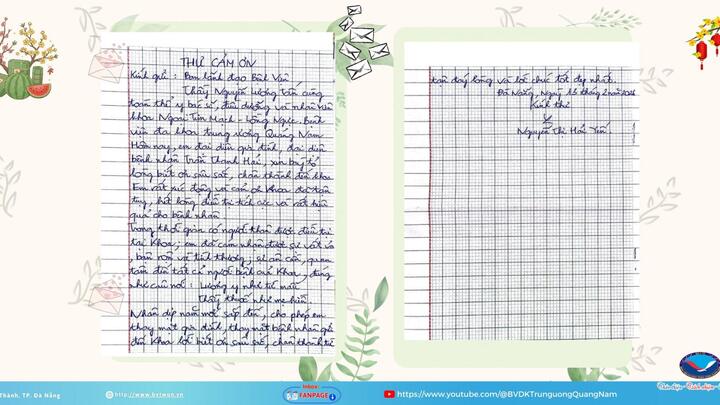 THƯ CẢM ƠN
Kính gửi: Ban lãnh đạo Bệnh Viện
Thầy Nguyễn Lương Tấn cùng
toàn thể y bác sĩ, điều dưỡng và nhân viên
khoa Ngoại Tim Mạch - Lồng Ngực. Bệnh
viện đa khoa trung ương Quảng Nam
Hôm nay, em đại diện gia đình, đại diện
bệnh nhân Trần Thanh Hải, xin bày tỏ
lòng biết ơn sâu sắc, chân thành đến khoa
Em rất xúc động và cảm ơn Khoa đã tận
tụy, hết lòng điều trị tích cực và rất hiệu
quả cho bệnh nhân.
Trong thời gian có người thân được điều trị
tại Khoa; em đã cảm nhận được sự vất vả
, bận rộn và tình thương, sự ân cần, quan
tâm đến tất cả người bệnh của Khoa, đúng
như câu nói: Lương y như từ mẫu
Thầy thuốc như mẹ hiền.
Nhân dịp năm mới sắp đến, cho phép em
thay mặt gia đình, thay mặt bệnh nhân gửi
đến Khoa lời biết ơn sâu sắc, chân thành từ
tận đáy lòng và lời chúc tốt đẹp nhất.
Đà Nẵng, Ngày 13 tháng 2 năm 2026
Kính thư
Nguyễn Thị Hải Yến.
Thành, TP. Đà Nẵng
http://www.bvtwqn.vn
Inbox:
FANPAGE
https://www.youtube.com/@BVDKTrunguongQuangNam